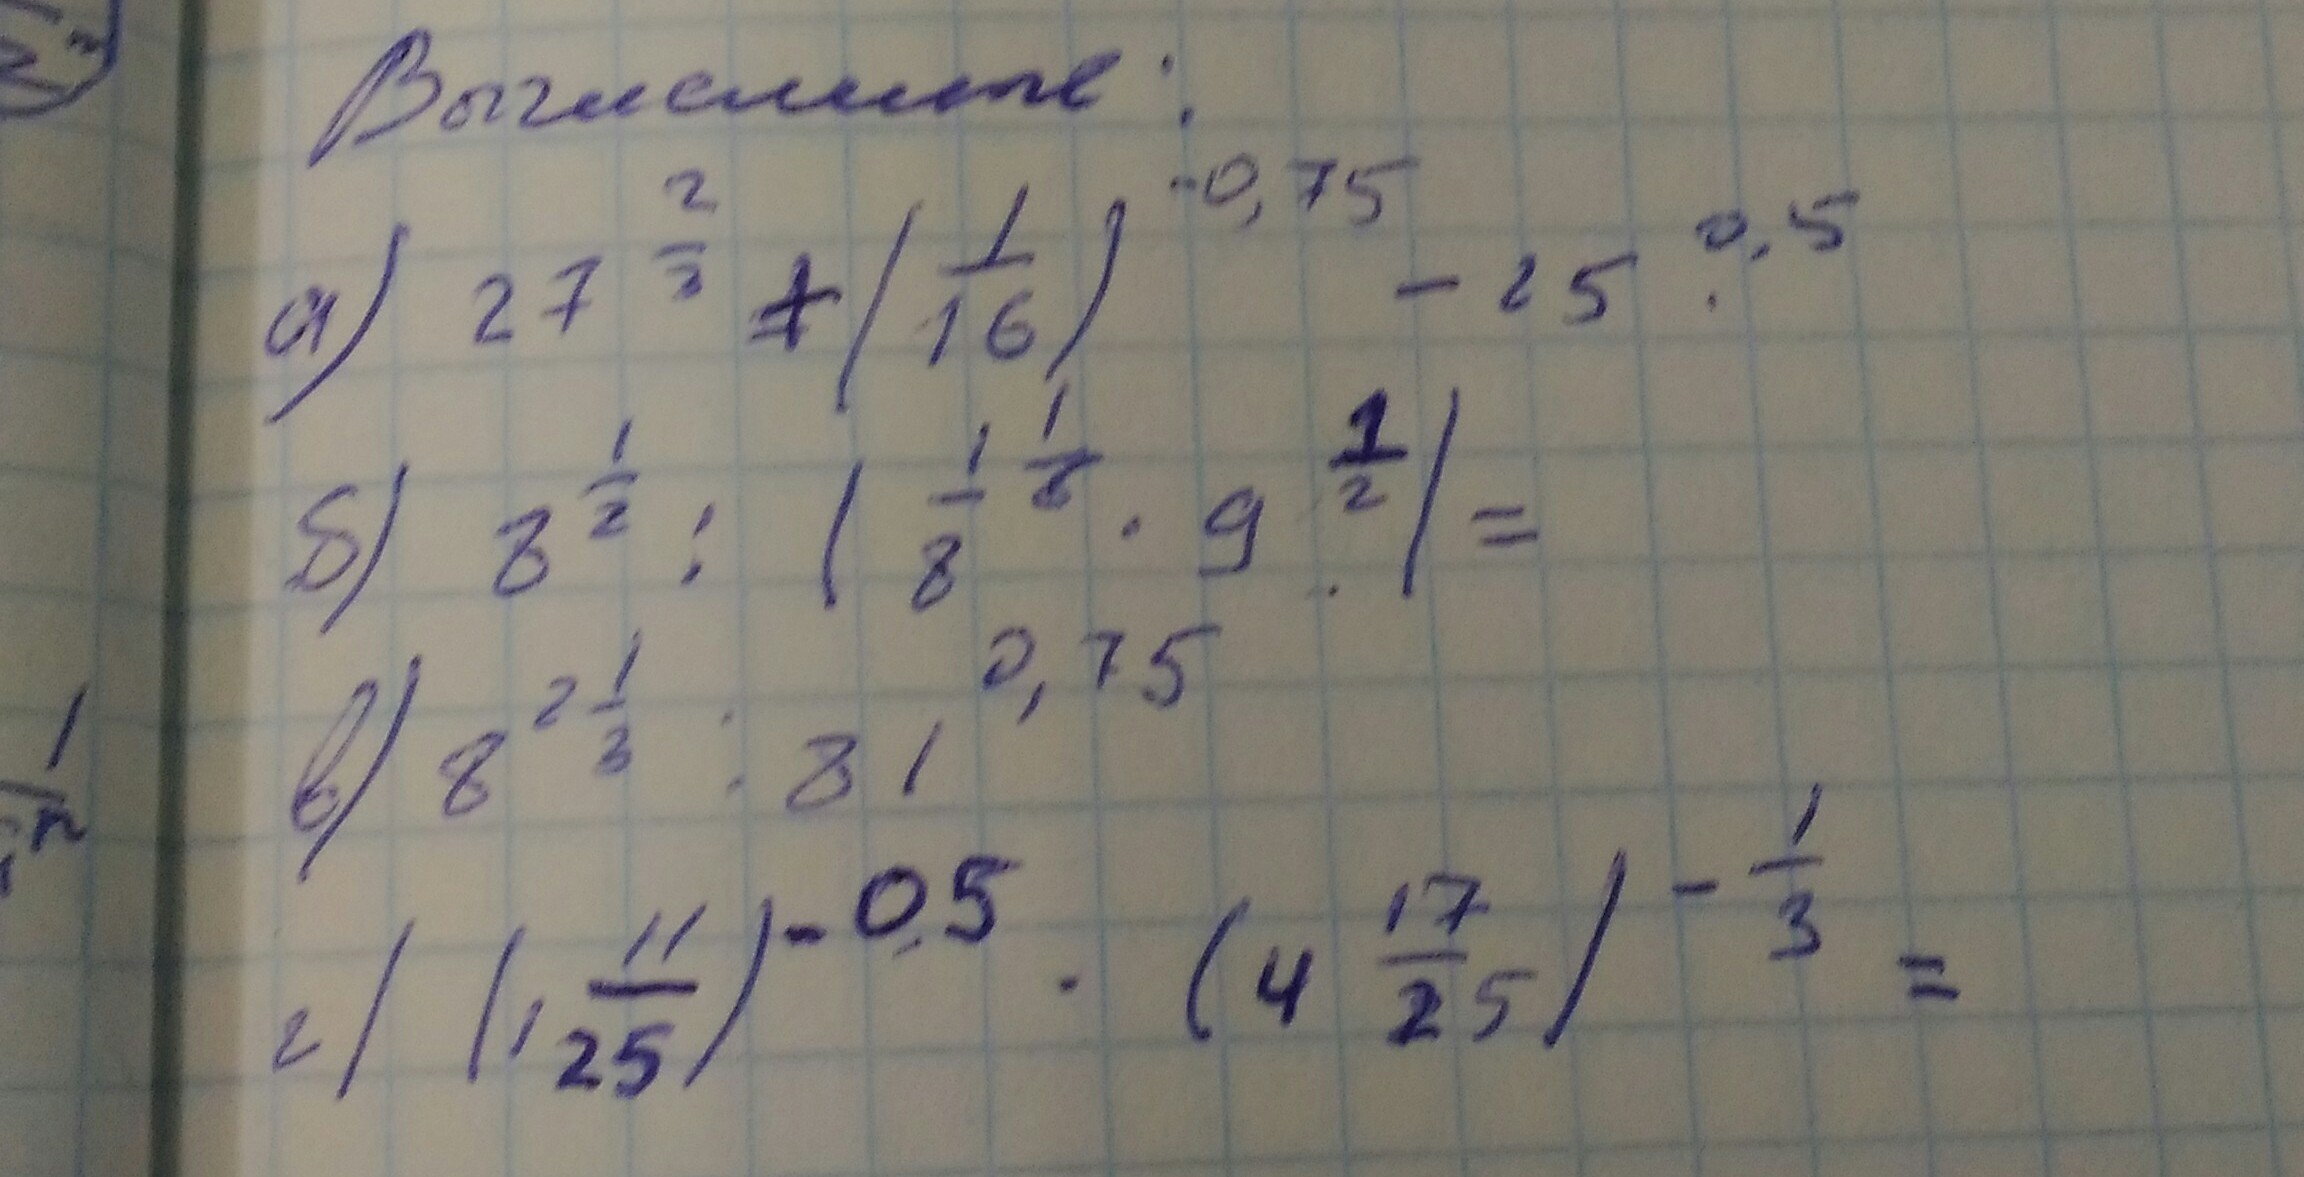 Вычислите:
а) 27^(2/3) + (1/16)^(-0,75) - 25^(0,5)
б) 8^(1/2) : (1/8^(1/2) · 9^(1/2)) =
в) 8^(2 1/3) : 81^(0,75)
г) (1 11/25)^(-0,5) · (4 17/25)^(-1/3) =